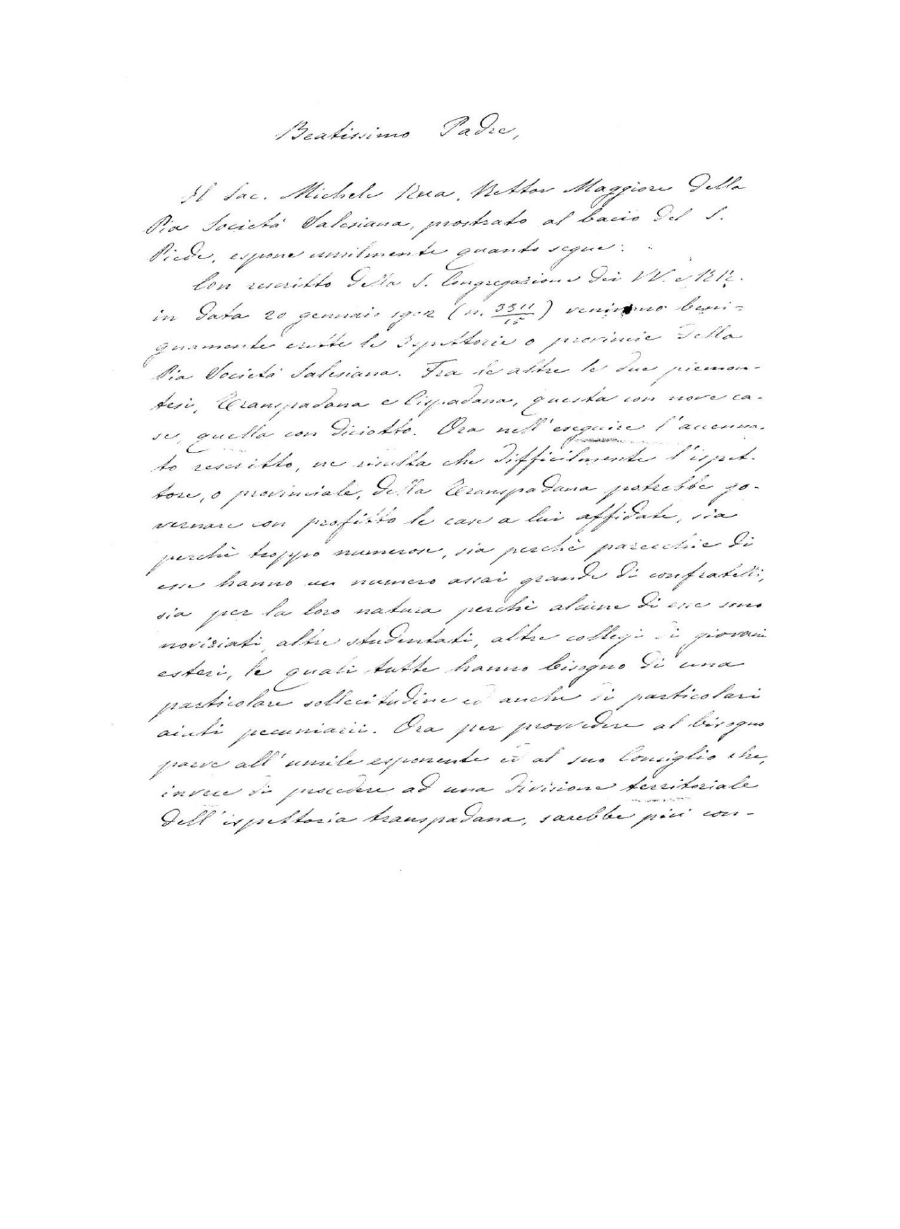 Beatissimo Padre,
Il Sac. Michele Rua, Rettor Maggiore della
Pia Società Salesiana, prostrato al bacio del S.
Piede, espone umilmente quanto segue:
Con rescritto della S. Congregazione dei VV. e RR.
in data 20 gennaio 1902 (n. 3511/15) venivano beni-
gnamente erette le Ispettorie o provincie della
Pia Società Salesiana. Fra le altre le due piemon-
tesi, Transpadana e Cispadana, questa con nove ca-
se, quella con diciotto. Ora nell'eseguire l'accenna-
to rescritto, ne risulta che difficilmente l'ispet-
tore, o provinciale, della Transpadana potrebbe go-
vernare con profitto le case a lui affidate, sia
perchè troppo numerose, sia perchè parecchie di
esse hanno un numero assai grande di confratelli,
sia per la loro natura perchè alcune di esse sono
noviziati, altre studentati, altre collegi di giovani
esteri, le quali tutte hanno bisogno di una
particolare sollecitudine ed anche di particolari
aiuti pecuniarii. Ora per provvedere al bisogno
parve all'umile esponente ed al suo Consiglio che,
invece di procedere ad una divisione territoriale
dell'ispettoria transpadana, sarebbe più con-